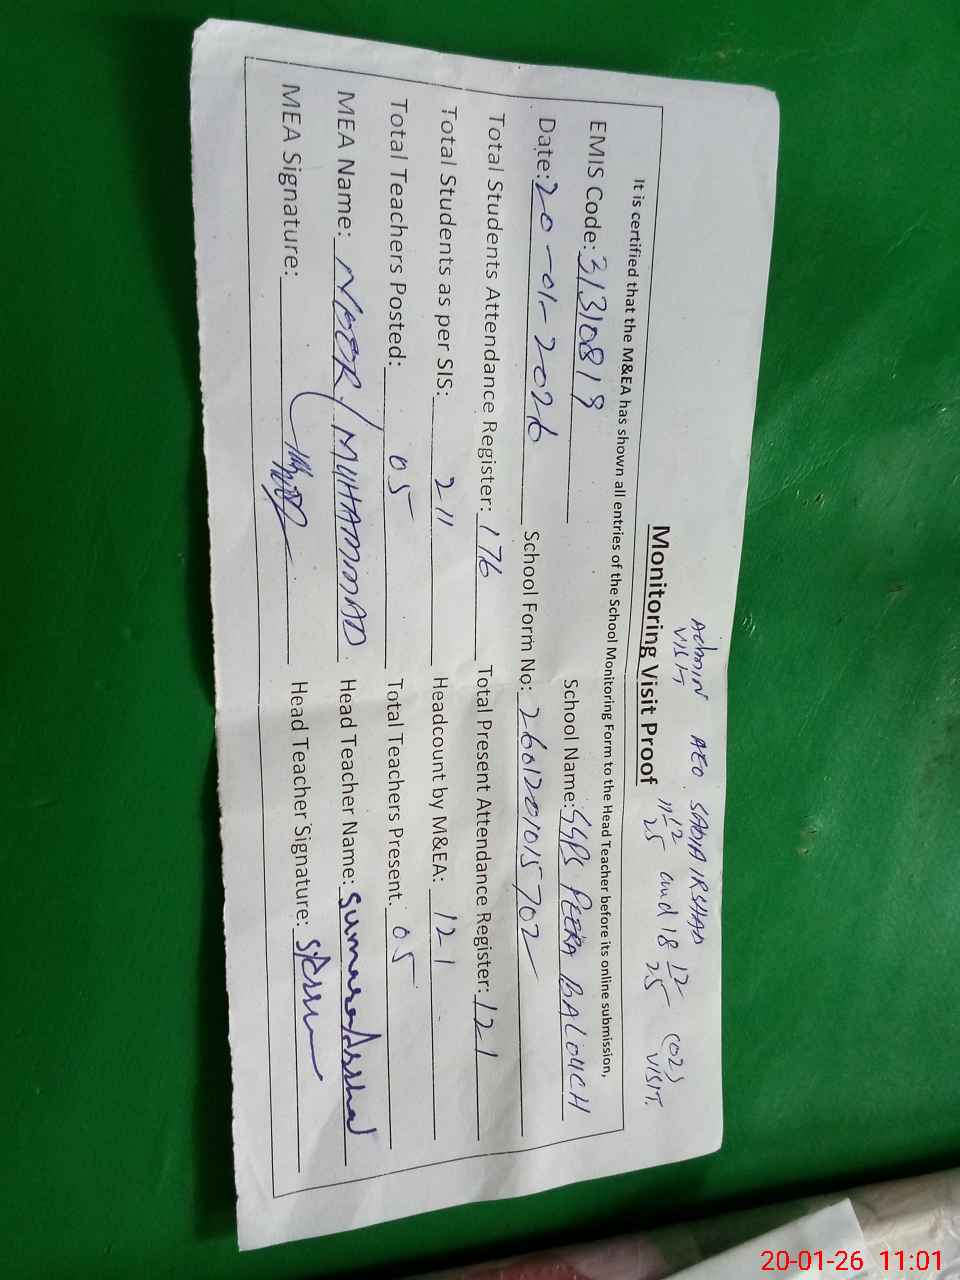 ADMIN VISIT AEO SADIA IRSHAD
11-12/25 and 18 12/25 (02) VISIT.
Monitoring Visit Proof
It is certified that the M&EA has shown all entries of the School Monitoring Form to the Head Teacher before its online submission,
EMIS Code: 31310819 School Name: GGPS PEERA BALOUCH
Date: 20-01-2026 School Form No: 2601201015702
Total Students Attendance Register: 176 Total Present Attendance Register: 121
Total Students as per SIS: 211 Headcount by M&EA: 121
Total Teachers Posted: 05 Total Teachers Present. 05
MEA Name: NOOR MUHAMMAD Head Teacher Name: Sumaira Arshad
MEA Signature: Head Teacher Signature:
20-01-26 11:01